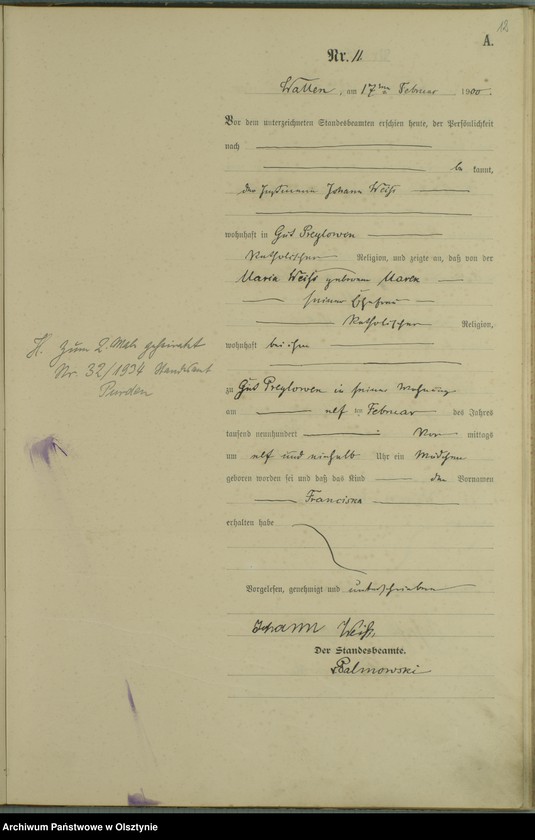 12
A.
Nr. 11
Wallen, am 17ten Februar 1900.
Vor dem unterzeichneten Standesbeamten erschien heute, der Persönlichkeit
nach
be kannt,
der Instmann Johann Weiss
wohnhaft in Gut Preylowen
katholischer Religion, und zeigte an, daß von der
Maria Weiss geborene
seiner Ehefrau
katholischer Religion,
wohnhaft bei ihm
zu Gut Preylowen in seiner Wohnung
am elf ten Februar des Jahres
tausend neunhundert Vor mittags
um elf und einhalb Uhr ein Mädchen
geboren worden sei und daß das Kind den Vornamen
Franciska
erhalten habe
Vorgelesen, genehmigt und unterschrieben
Johann Weiss
Der Standesbeamte.
Palmowski
H. zum 2. Mal geheiratet
Nr. 32/1934 Standesamt
Purden
Archiwum Państwowe w Olsztynie